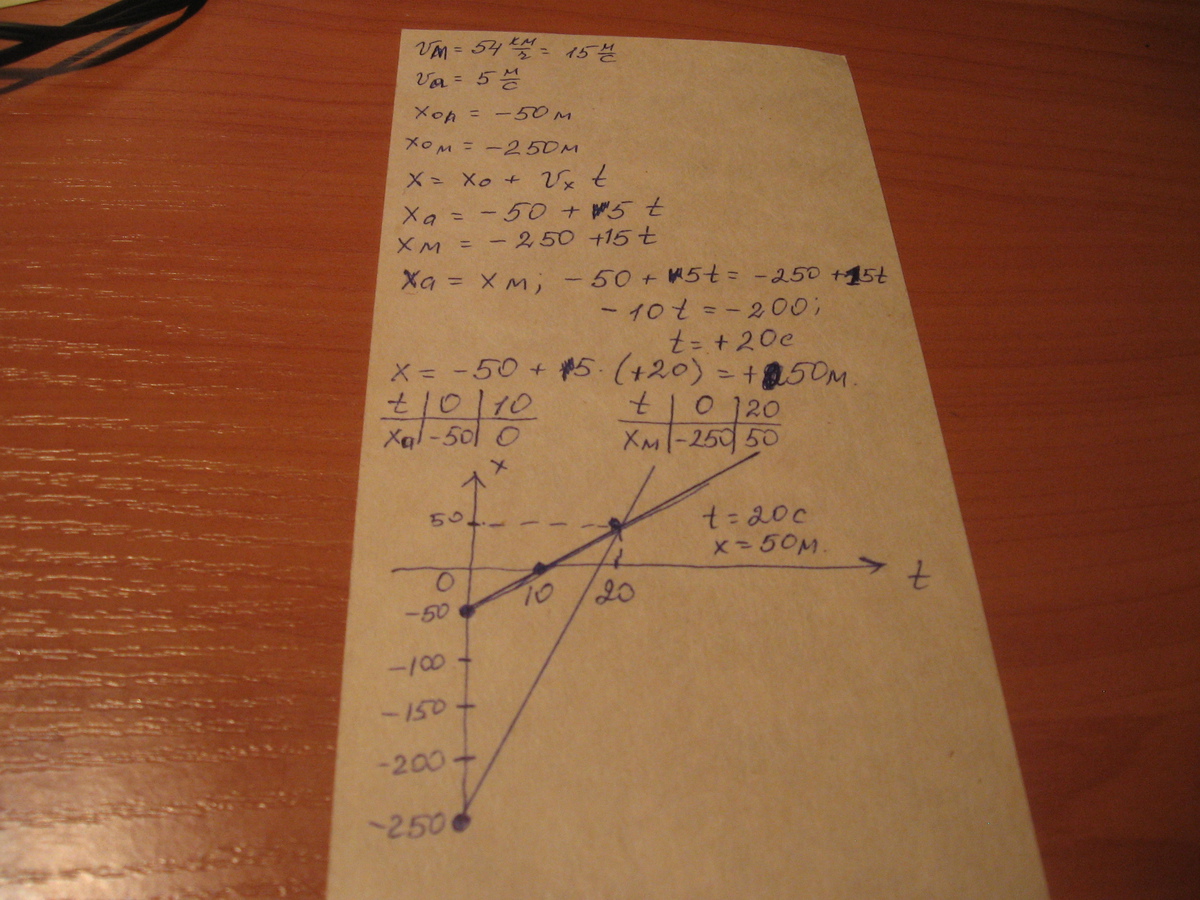 vм = 54 км/ч = 15 м/с
va = 5 м/с
x0a = -50 м
x0м = -250 м
x = x0 + vx t
xa = -50 + 5 t
xм = -250 + 15 t
xa = xм; -50 + 5t = -250 + 15t
-10 t = -200;
t = +20 с
x = -50 + 5 · (+20) = +50 м.
t | 0 | 10 t | 0 | 20
xa | -50 | 0 xм | -250 | 50
x
50
t = 20 с
x = 50 м.
0 10 20 t
-50
-100
-150
-200
-250